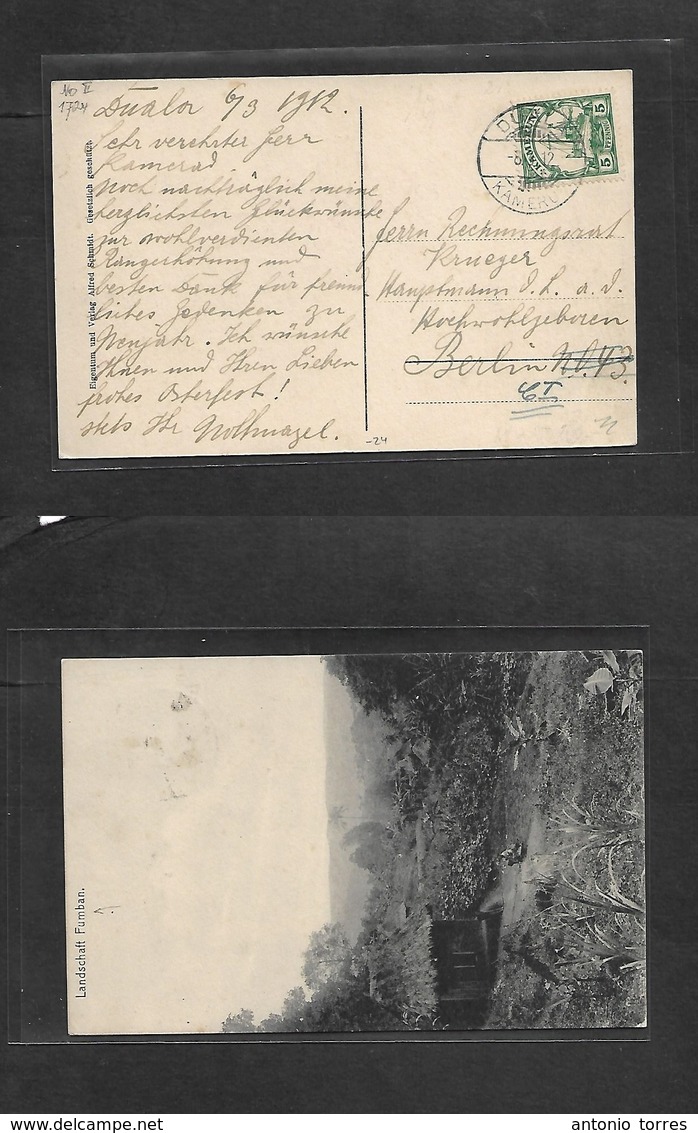 No II
1724
Duala 6/3 1912.
Sehr verehrter Herr
Kamerad
Noch nachträglich meine
herzlichsten Glückwünsche
zur wohlverdienten
Rangerhöhung und
besten Dank für freund
liches Gedenken zu
Neujahr. Ich wünsche
Ihnen und Ihren Lieben
frohes Osterfest!
stets Ihr
Eigentum und Verlag Alfred Schmidt. Gesetzlich geschützt.
KAMERUN
5
5
PFENNIG
Herrn Rechnungsrat
Krueger
Hauptmann d. L. a. d.
Hochwohlgeboren
Berlin N.O. 43.
-24
Landschaft Fumban.
antonio torres